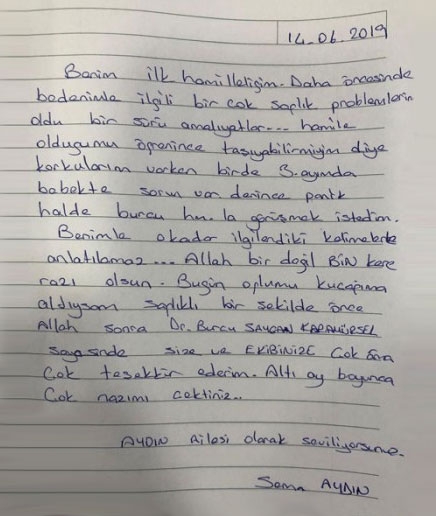 14.06.2019
Benim ilk hamileliğim. Daha öncesinde
bedenimle ilgili bir çok sağlık problemlerim
oldu bir sürü ameliyatlar... hamile
olduğumu öğrenince taşıyabilirmiyim diye
korkularım varken birde 3. ayımda
bebekte sorun var denince panik
halde burcu hn. la görüşmek istedim.
Benimle okadar ilgilendiki kelimelerle
anlatılamaz... Allah bir değil BİN kere
razı olsun. Bugün oğlumu kucağıma
aldıysam sağlıklı bir şekilde önce
Allah sonra Dr. Burcu SAYGAN KARAMÜRSEL
sayesinde size ve EKİBİNİZE Çok
Çok teşekkür ederim. Altı ay boyunca
Çok nazımı çektiniz..
AYDIN ailesi olarak seviliyorsunuz.
Sema AYDIN